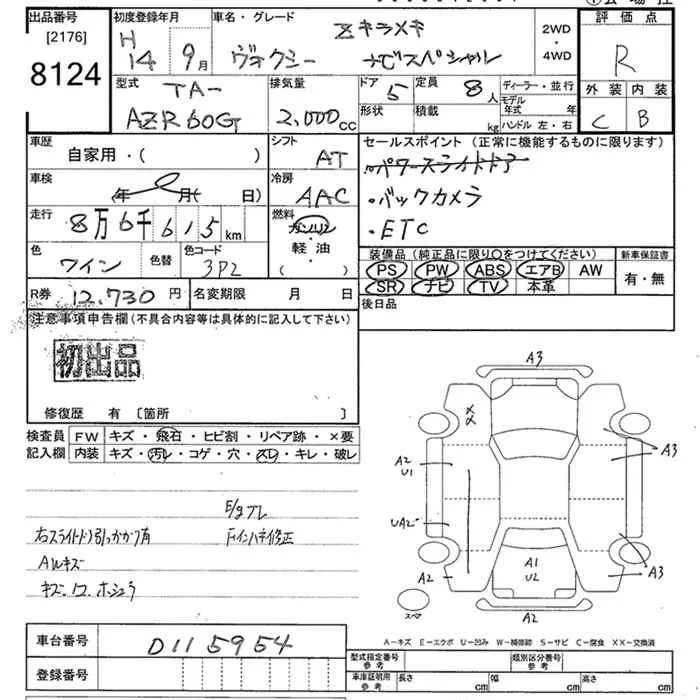 出品番号
[2176]
8124
初度登録年月
H
14 9月
車名・グレード
Zキラメキ
ヴォクシー ナビスペシャル
2WD
・
4WD
評価点
R
外装 内装
C B
型式
TA-
AZR60G
排気量
2,000cc
ドア 5
定員 8人
形状 積載 kg
ディーラー・並行
モデル年式 年
ハンドル 左・右
車歴
自家用・( )
シフト
AT
車検
(年 月( 日)
冷房
AAC
走行
8万6千615km
燃料
ガソリン
・
軽油
( )
色
ワイン
色替
色コード
3P2
セールスポイント(正常に機能するものに限ります)
・パワースライドドア
・バックカメラ
・ETC
装備品(純正品に限り○をつけてください)
PS PW ABS エアB AW
SR ナビ TV 本革
新車保証書
有・無
R券 12,730円
名変期限 月 日
後日品
注意事項申告欄(不具合内容等は具体的に記入して下さい)
初出品
修復歴 有 〔箇所 〕
検査員
記入欄
FW キズ・飛石・ヒビ割・リペア跡・×要
内装 キズ・汚レ・コゲ・穴・スレ・キレ・破レ
右スライドドア引っかかり有
Aルキズ
キズ・ワ.ホショウ
E/gブレ
Fインハネ修正
A3
XX
A3
A2
U1
UA2
A1
U2
A2
A3
A2
スペア
A−キズ E−エクボ U−凹み W−補修跡 S−サビ C−腐食 XX−交換済
車台番号
D115954
登録番号
型式指定番号
参考
類別区分番号
参考
車庫証明用
参考
長さ cm
幅 cm
高さ cm